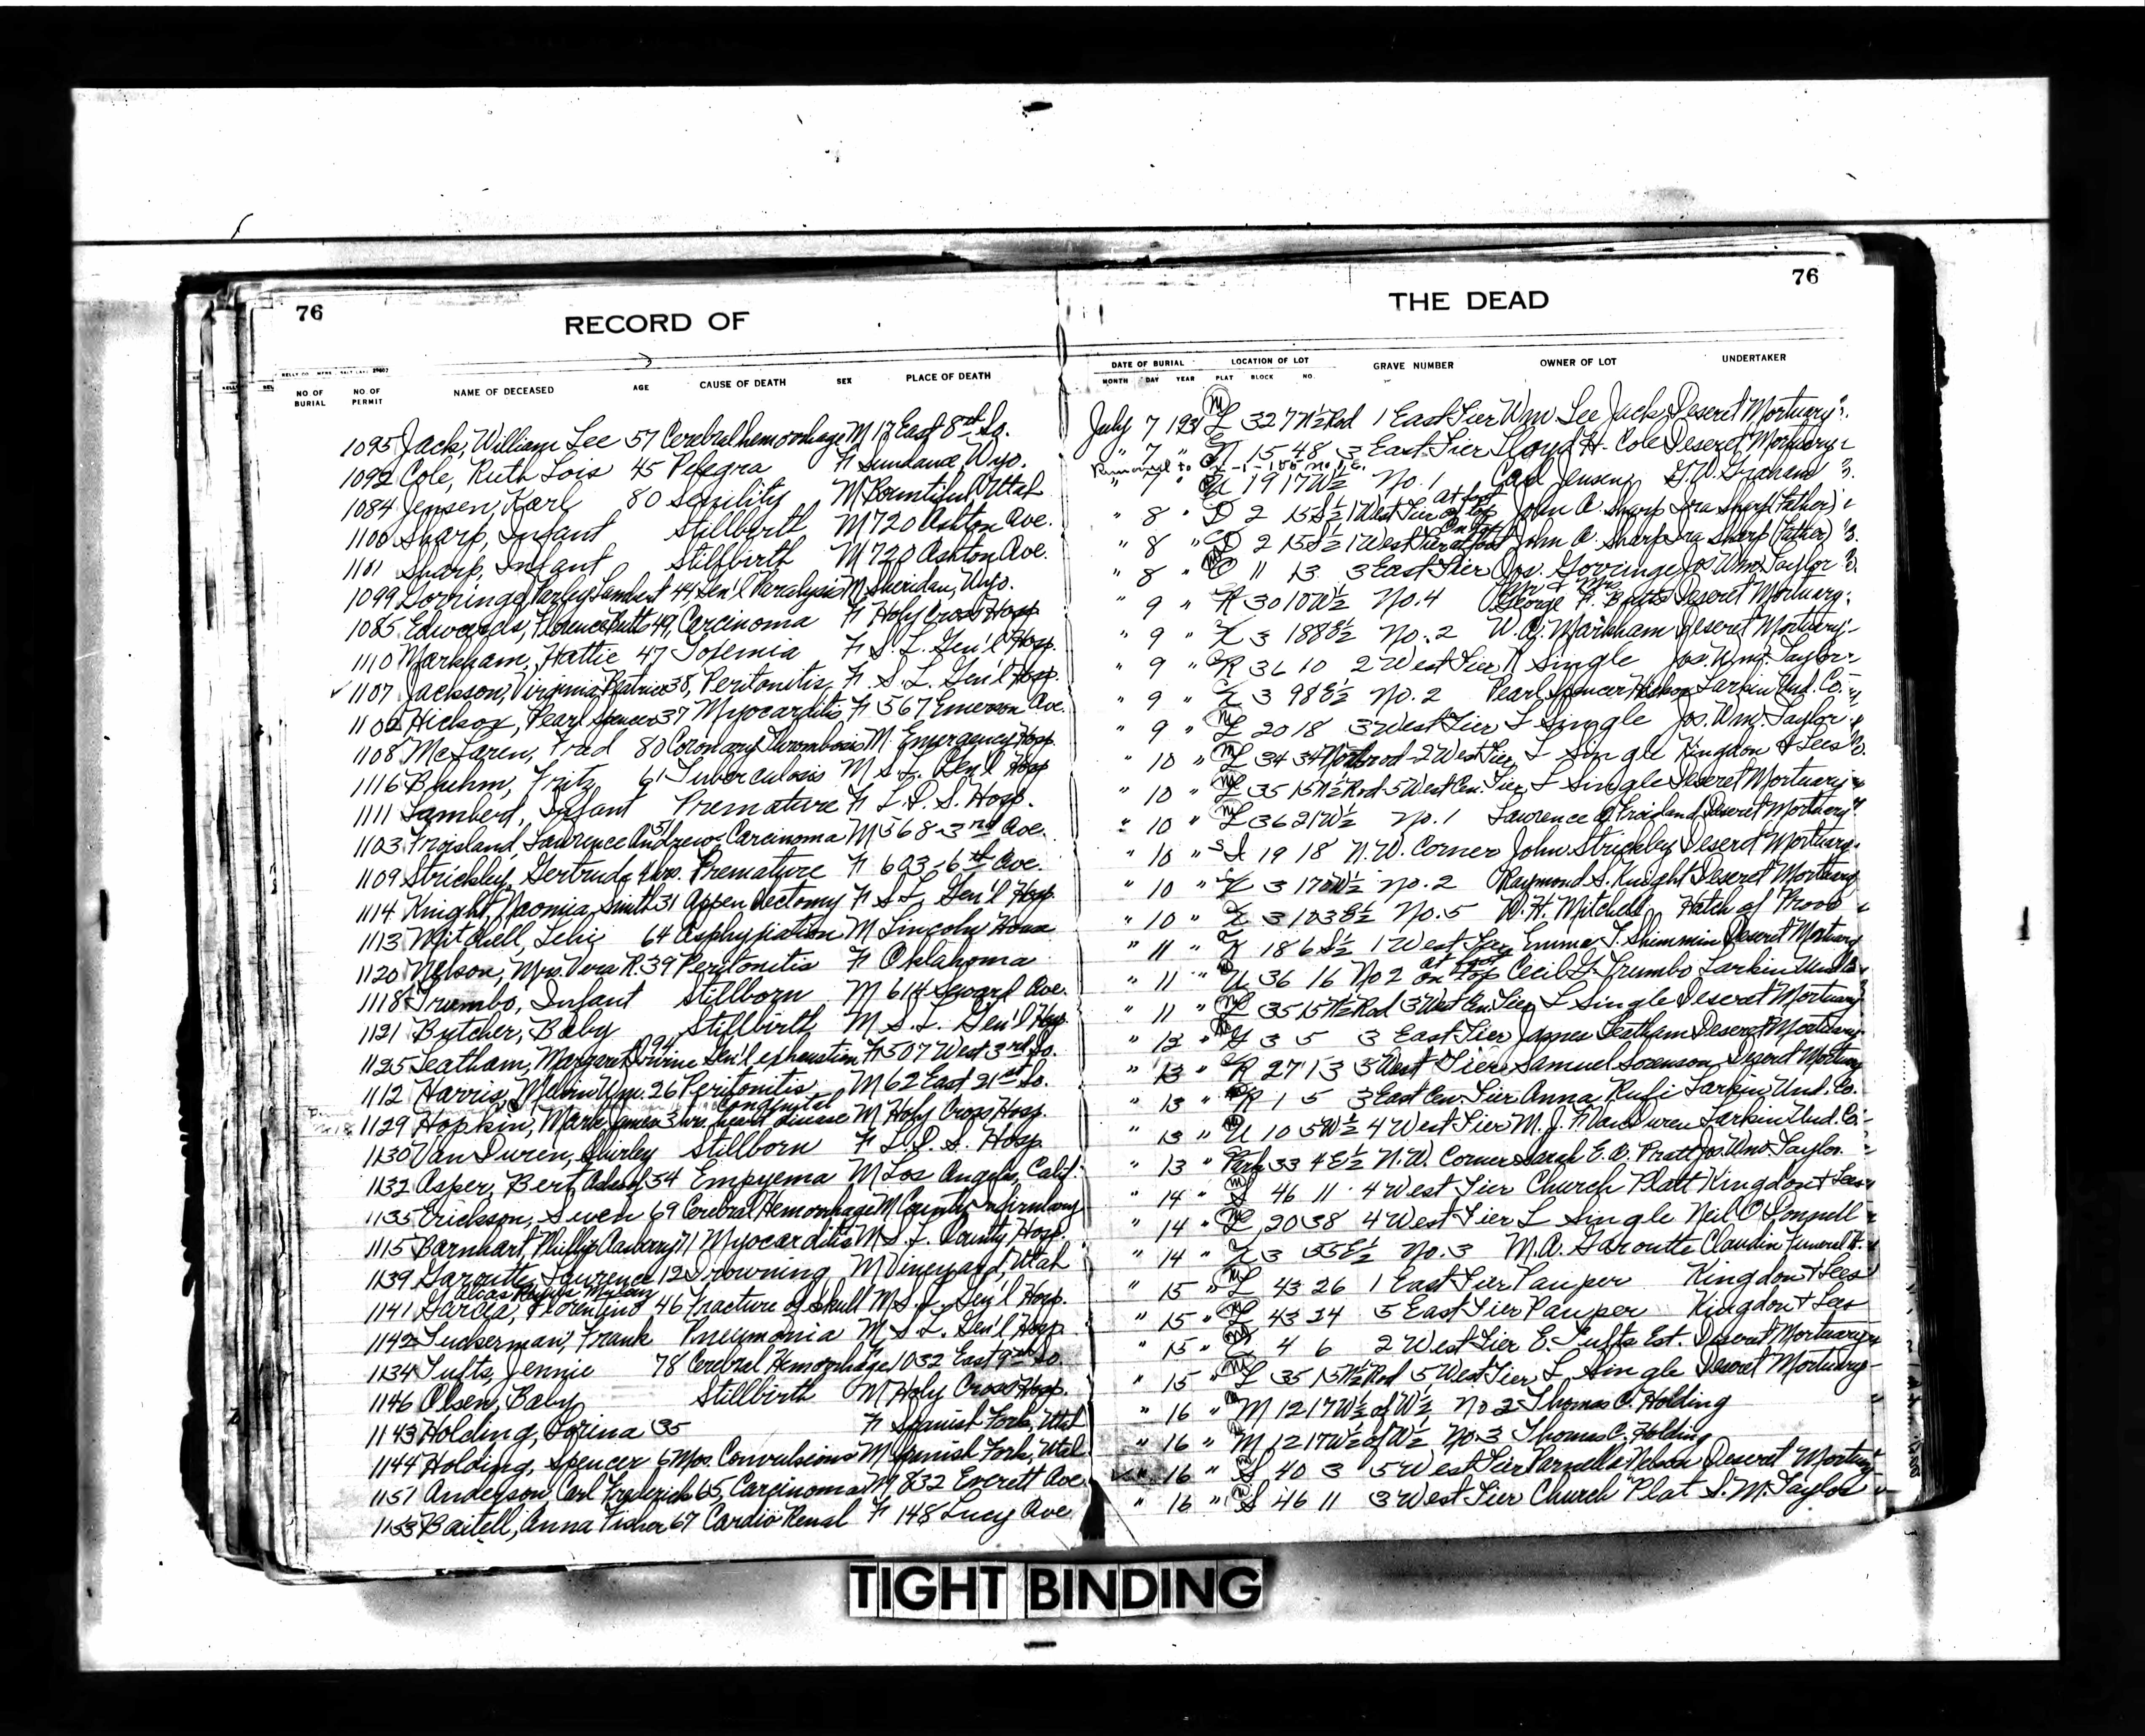 76
RECORD OF
THE DEAD
76
NO. OF BURIAL NO. OF PERMIT NAME OF DECEASED AGE CAUSE OF DEATH SEX PLACE OF DEATH
DATE OF BURIAL LOCATION OF LOT GRAVE NUMBER OWNER OF LOT UNDERTAKER
MONTH DAY YEAR PLAT BLOCK NO.
1095 Jack, William Lee 57 Cerebral hemorrhage M 17 East 8th So. July 7 1931 L 32 7 N½ Rod 1 East Tier Wm Lee Jack Deseret Mortuary
1092 Cole, Ruth Lois 45 Pelegra F Sundance, Wyo. " 7 " 15 48 3 East Tier Lloyd H. Cole Deseret Mortuary
Removed to
1084 Jensen, Karl 80 Senility M Bountiful, Utah " 7 " U 19 17 W½ No. 1 Carl Jensen G.W. Graham
1100 Sharp, Infant Stillbirth M 720 Ashton Ave. " 8 " D 2 15 S½ 1 West Tier at foot on top John A. Sharp Ira Sharp (Father)
1101 Sharp, Infant Stillbirth M 720 Ashton Ave. " 8 " D 2 15 S½ 1 West Tier at foot on top John A. Sharp Ira Sharp (Father)
1099 Gorringe, Parley Lambert 44 Gen'l Paralysis M Sheridan, Wyo. " 8 " C 11 13 3 East Tier Jos. Gorringe Jos. Wm. Taylor
1085 Edwards, Florence Butts 49 Carcinoma F Holy Cross Hosp. " 9 " R 30 10 W½ No. 4 Mr. & Mrs. George F. Butts Deseret Mortuary
1110 Markham, Hattie 47 Toxemia F S.L. Gen'l Hosp. " 9 " X 3 188 E½ No. 2 W.A. Markham Deseret Mortuary
1107 Jackson, Virginia Beatrice 38 Peritonitis F S.L. Gen'l Hosp. " 9 " R 36 10 2 West Tier R Single Jos. Wm. Taylor
1102 Hickox, Pearl Spencer 37 Myocarditis F 567 Emerson Ave. " 9 " X 3 98 E½ No. 2 Pearl Spencer Hickox Larkin Und. Co.
1108 McLaren, Fred 80 Coronary Thrombosis M Emergency Hosp. " 9 " L 20 18 3 West Tier L Single Jos. Wm. Taylor
1116 Buehm, Fritz 61 Tuberculosis M S.L. Gen'l Hosp " 10 " L 34 34 North rod 2 West Tier L Single Kingdon & Lees
1111 Lamberd, Infant Premature F L.D.S. Hosp. " 10 " L 35 15 N½ Rod 5 West Cen. Tier L Single Deseret Mortuary
1103 Froisland, Lawrence Andrew 51 Carcinoma M 568-3rd Ave. " 10 " L 36 21 W½ No. 1 Lawrence A. Froisland Deseret Mortuary
1109 Strickley, Gertrude 4 hrs. Premature F 603-6th Ave. " 10 " 19 18 N.W. Corner John Strickley Deseret Mortuary
1114 Knight, Naomia Smith 31 Appendectomy F S.L. Gen'l Hosp. " 10 " X 3 170 W½ No. 2 Raymond S. Knight Deseret Mortuary
1113 Mitchell, Lehi 64 Asphyxiation M Lincoln House " 10 " X 3 103 E½ No. 5 W.H. Mitchell Hatch of Provo
1120 Nelson, Mrs. Vera R. 39 Peritonitis F Oklahoma " 11 " 18 6 S½ 1 West Tier Emma T. Shimmin Deseret Mortuary
1118 Trumbo, Infant Stillborn M 614 Seward Ave. " 11 " U 36 16 No 2 at foot on top Cecil G. Trumbo Larkin Und. Co.
1121 Butcher, Baby Stillbirth M S.L. Gen'l Hosp. " 11 " L 35 15 N½ Rod 3 West Cen. Tier L Single Deseret Mortuary
1125 Leatham, Margaret Irvine 94 Gen'l exhaustion F 507 West 3rd So. " 12 " G 3 5 3 East Tier James Leatham Deseret Mortuary
1112 Harris, Melvin Wm. 26 Peritonitis M 62 East 21st So. " 13 " R 27 13 3 West Tier Samuel Sorenson Deseret Mortuary
1129 Hopkin, Mark James 3 hrs. Congenital heart disease M Holy Cross Hosp. " 13 " R 1 5 3 East Cen. Tier Anna Rufi Larkin Und. Co.
1130 Van Duren, Shirley Stillborn F L.D.S. Hosp. " 13 " U 10 5 W½ 4 West Tier M.J.F. Van Duren Larkin Und. Co.
1132 Asper, Bert Adolf 54 Empyema M Los Angeles, Calif. " 13 " Park 33 4 E½ N.W. Corner Sarah E.A. Pratt Jos. Wm. Taylor
1135 Erickson, Swen 69 Cerebral Hemorrhage M County Infirmary " 14 " S 46 11 4 West Tier Church Platt Kingdon & Lees
1115 Barnhart, Phillip 71 Myocarditis M S.L. County Hosp. " 14 " L 20 38 4 West Tier L Single Neil O'Donnell
1139 Garoutte, Lawrence 12 Drowning M Vineyard, Utah " 14 " X 3 55 E½ No. 3 M.A. Garoutte Claudin Funeral H.
1141 Garcia, Florentino 46 Fracture of Skull M S.L. Gen'l Hosp. " 15 " L 43 26 1 East Tier Pauper Kingdon & Lees
1142 Tuckerman, Frank Pneumonia M S.L. Gen'l Hosp " 15 " L 43 24 5 East Tier Pauper Kingdon & Lees
1134 Tufts, Jennie 78 Cerebral Hemorrhage 1032 East 9th So. " 15 " 4 6 2 West Tier E. Tufts Est. Deseret Mortuary
1146 Olsen, Baby Stillbirth M Holy Cross Hosp. " 15 " L 35 15 N½ Rod 5 West Tier L Single Deseret Mortuary
1143 Holding, Lorina 35 F Spanish Fork, Utah " 16 " M 12 17 W½ of W½ No 2 Thomas C. Holding
1144 Holding, Spencer 6 Mos. Convulsions M Spanish Fork, Utah " 16 " M 12 17 W½ of W½ No. 3 Thomas C. Holding
1151 Anderson, Carl Frederick 65 Carcinoma M 832 Everett Ave. " 16 " S 40 3 5 West Tier Parnella Nelson Deseret Mortuary
1153 Baitell, Anna Fisher 67 Cardio Renal F 148 Lucy Ave " 16 " S 46 11 3 West Tier Church Plat S.M. Taylor
TIGHT BINDING